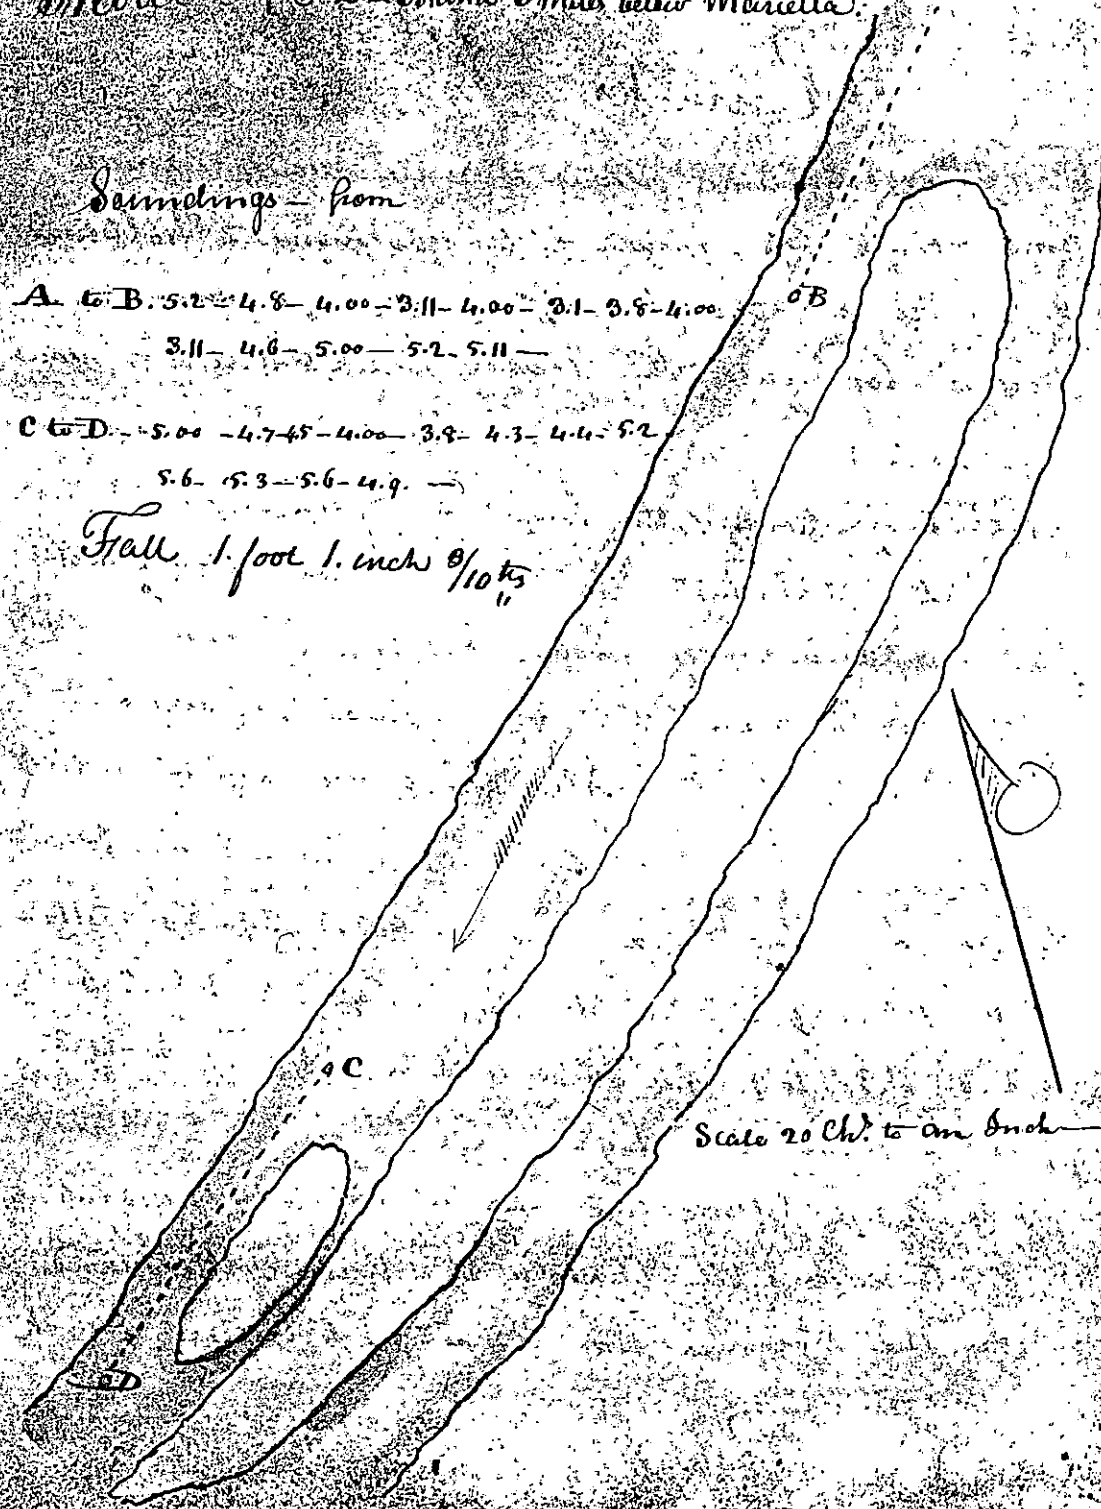 Miles below Marietta.
Soundings - from
A to B. 5.2 - 4.8 - 4.00 - 3.11 - 4.00 - 3.1 - 3.8 - 4.00
3.11 - 4.6 - 5.00 - 5.2 - 5.11 -
B
C to D. - 5.00 - 4.7 - 4.5 - 4.00 - 3.8 - 4.3 - 4.4 - 5.2
5.6 - 5.3 - 5.6 - 4.9. -
Fall 1. foot 1. inch 8/10 ths
C
Scale 20 Chs. to an Inch
D